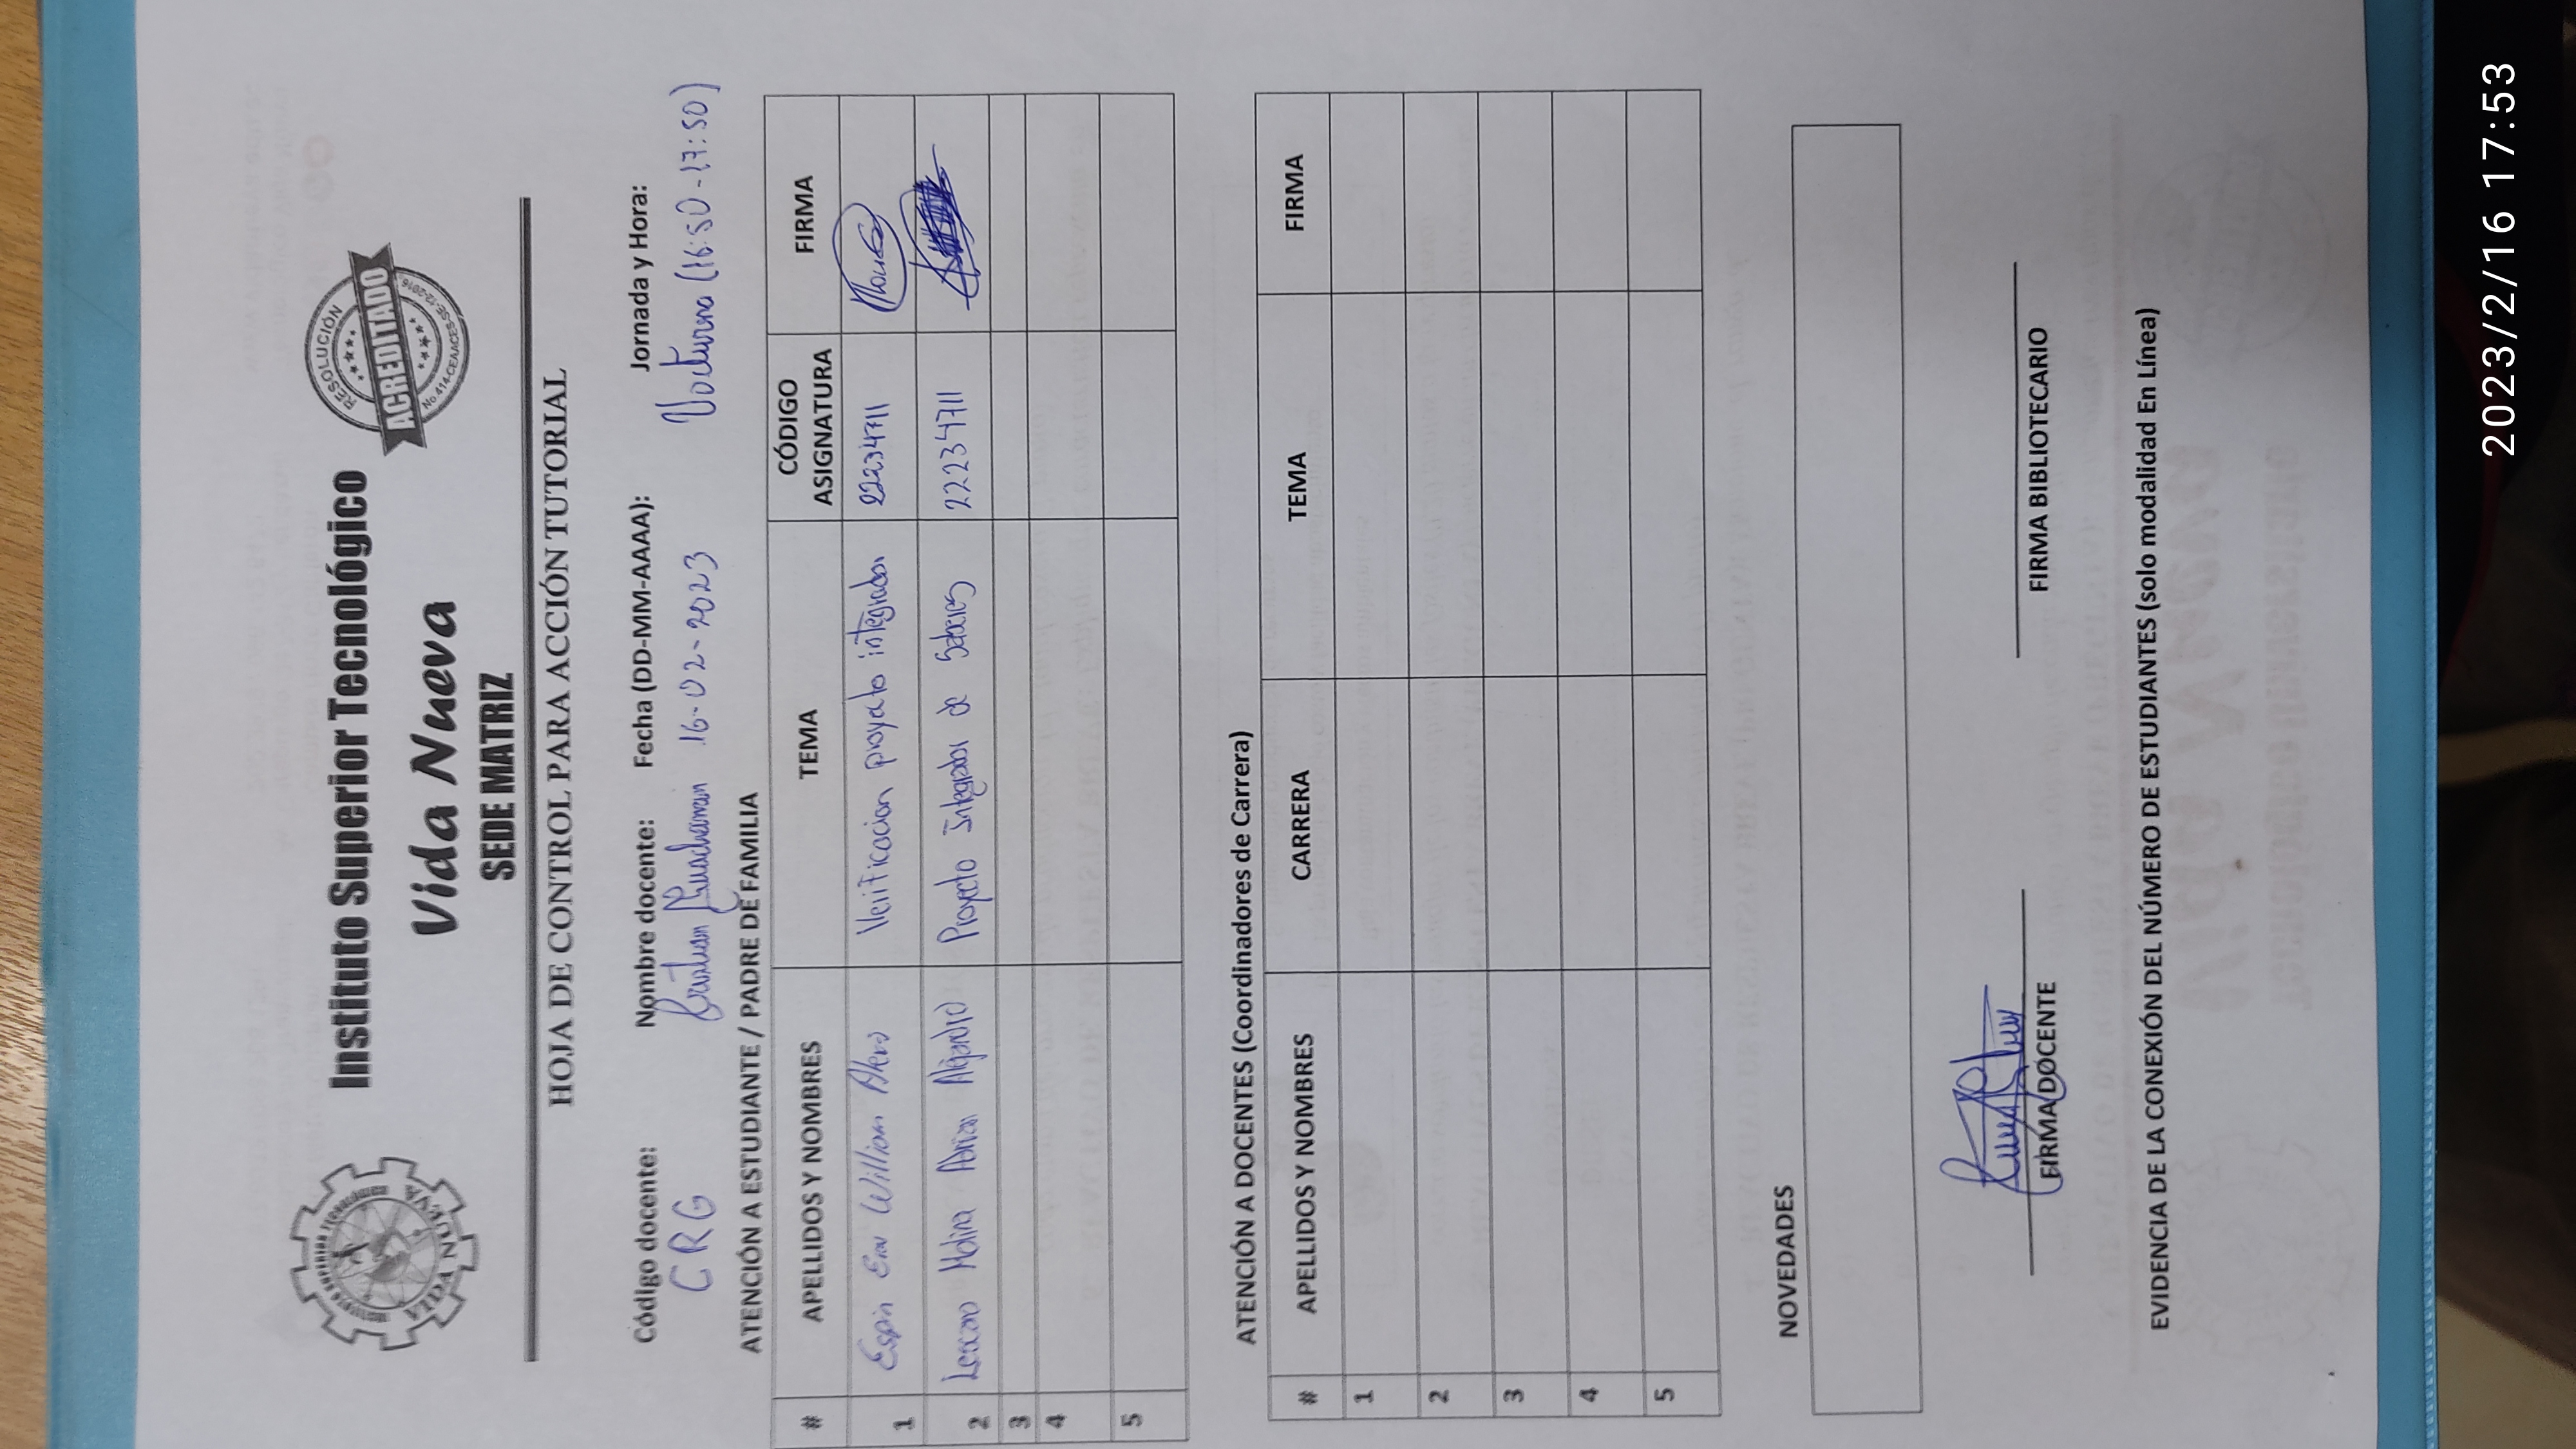 INSTITUTO SUPERIOR TECNOLÓGICO
VIDA NUEVA
Instituto Superior Tecnológico
Vida Nueva
SEDE MATRIZ
RESOLUCIÓN
ACREDITADO
No.414-CEAACES-SE-12-2016
HOJA DE CONTROL PARA ACCIÓN TUTORIAL
Código docente: Nombre docente: Fecha (DD-MM-AAAA): Jornada y Hora:
CRG Cristian Guachamin 16-02-2023 Nocturna (16:50-17:50)
ATENCIÓN A ESTUDIANTE / PADRE DE FAMILIA
# APELLIDOS Y NOMBRES TEMA CÓDIGO ASIGNATURA FIRMA
1 Espin William Verificacion proyecto integrador 22234711
2 Molina Adrian Alejandro Proyecto Integrador de Saberes 22234711
3
4
5
ATENCIÓN A DOCENTES (Coordinadores de Carrera)
# APELLIDOS Y NOMBRES CARRERA TEMA FIRMA
1
2
3
4
5
NOVEDADES
FIRMA DOCENTE FIRMA BIBLIOTECARIO
EVIDENCIA DE LA CONEXIÓN DEL NÚMERO DE ESTUDIANTES (solo modalidad En Línea)
2023/2/16 17:53